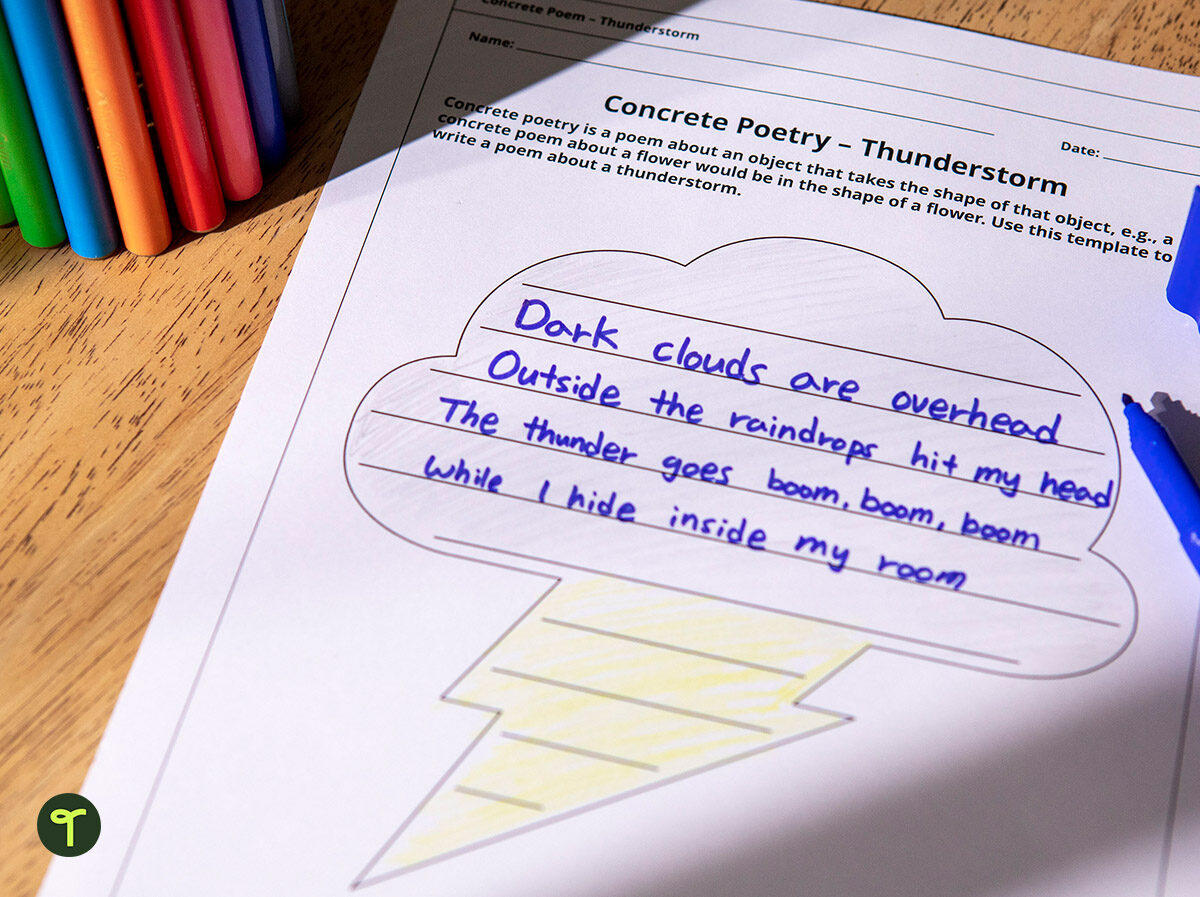 Concrete Poem – Thunderstorm
Name:
Date:
Concrete Poetry – Thunderstorm
Concrete poetry is a poem about an object that takes the shape of that object, e.g., a
concrete poem about a flower would be in the shape of a flower. Use this template to
write a poem about a thunderstorm.
Dark clouds are overhead
Outside the raindrops hit my head
The thunder goes boom, boom, boom
while I hide inside my room